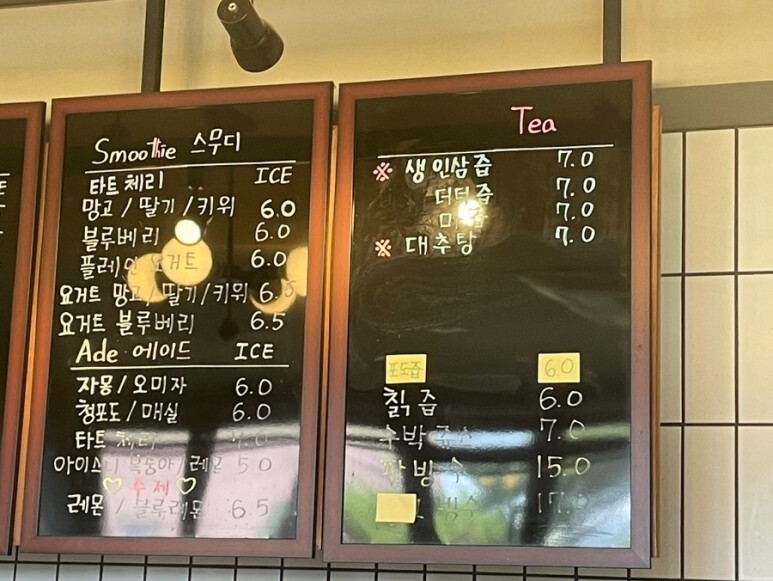 Smoothie 스무디
타트체리 ICE
망고/딸기/키위 6.0
블루베리 6.0
플레인 요거트 6.0
요거트 망고/딸기/키위 6.5
요거트 블루베리 6.5
Ade 에이드 ICE
자몽/오미자 6.0
청포도/매실 6.0
타트체리
아이스티 복숭아/레몬 5.0
♡수제♡
레몬/블루레몬 6.5
Tea
※ 생인삼즙 7.0
더덕즙 7.0
7.0
※ 대추탕 7.0
포도즙 6.0
칡즙 6.0
수박쥬스 7.0
팥빙수 15.0
빙수